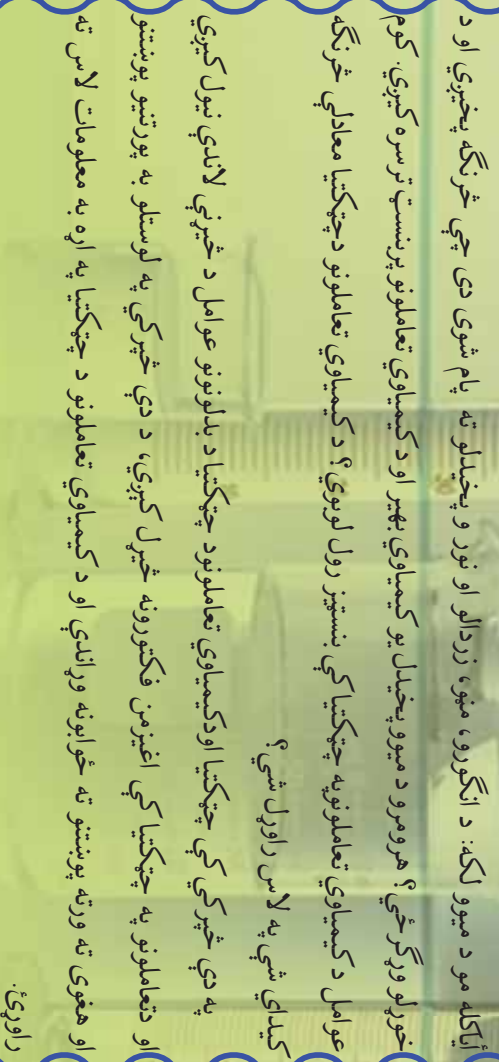 آیاکله مو د میوو لکه: د انگورو، منو، زردالو او نور و پخیدلو ته پام شوی دی چې څرنگه پخیږي او د
خوړلو وړگر ځي؟ هرومرو د میوو پخیدل یو کیمیاوي بهیر او د کیمیاوي تعاملونو پربنسټ تر سره کیږي. کوم
عوامل د کیمیاوي تعاملونوپه چټکتیا کې بنسټیز رول لوبوي؟ د کیمیاوي تعاملونو دچټکتیا معادلې څرنگه
کیدای شي په لاس راوړل شي؟
په دې څپرکي کې چټکتیا اودکیمیاوي تعاملونود چټکتیا د بدلونونو عوامل د څیړنې لاندې نیول کیږي
او دتعاملونو په چټکتیا کې اغیزمن فکتورونه څیړل کیږي، د دې څپرکي په لوستلو به پورتنیو پوښتنو
او هغوی ته ورته پوښتنو ته ځوابونه وړاندې او د کیمیاوي تعاملونو د چټکتیا په اړه به معلومات لاس ته
راوړئ.